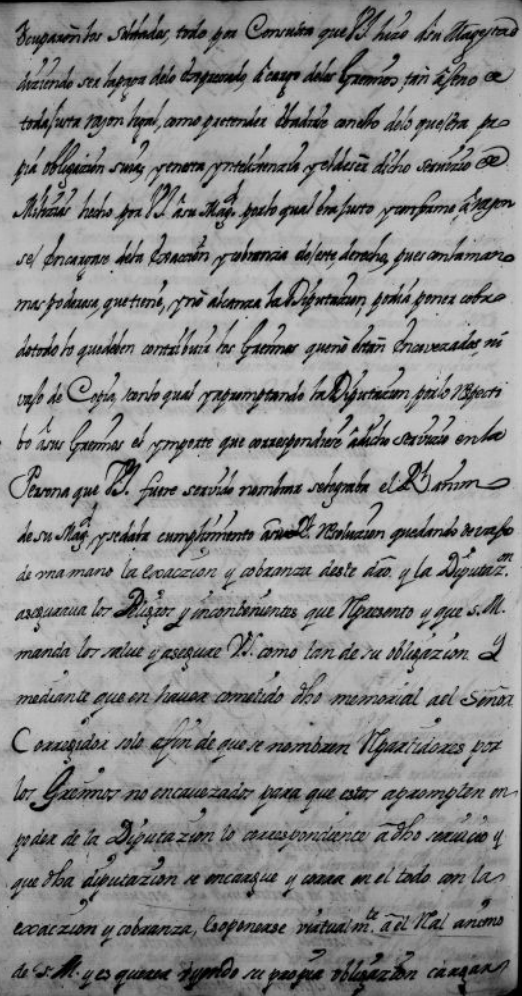 todo por Consulta que VS. hizo a su Magestad
diziendo ser la paga delo a cargo delos Gremios, tan ageno de
toda justa razon legal, como pretender con ello delo que era pro
pia obligazion suia, y en esta ynteligencia y el deseo dicho servizio de
Milizias hecho por VS. a su Magd. por lo qual era justo y conforme a razon
se encargase dela exaccion y cobranza de este derecho, pues con la mano
mas poderosa, que tiene, y no alcanza la Diputazion, podia poner cobro
de todo lo que deben contribuir los Gremios que no estan encavezados, ni
de Copia, con lo qual y apromptando la Diputazion por lo respecti
bo a sus Gremios el ymporte que correspondiere a dicho servizio en la
Persona que VS. fuere servido nombrar se lograba el Rl. animo
de su Magd. y se daba cumplimiento a su Rl. resoluzion quedando
de una mano la exaczion y cobranza deste dro. y la Diputazon.
asegurava los Peligros y inconbenientes que represento y que S. M.
manda los salve y asegure VS. como tan de su obligazion. Y
mediante que en haver cometido dho memorial a el Señor
Corregidor solo a fin de que se nombren repartidores por
los Gremios no encavezados para que estos aprompten en
poder de la Diputazion lo correspondiente a dho servicio y
que dha diputazion se encargue y corra en el todo con la
exaczion y cobranza, es oponerse virtualmte. a el Real animo
de S. M. y es querer su propia obligazion cargar